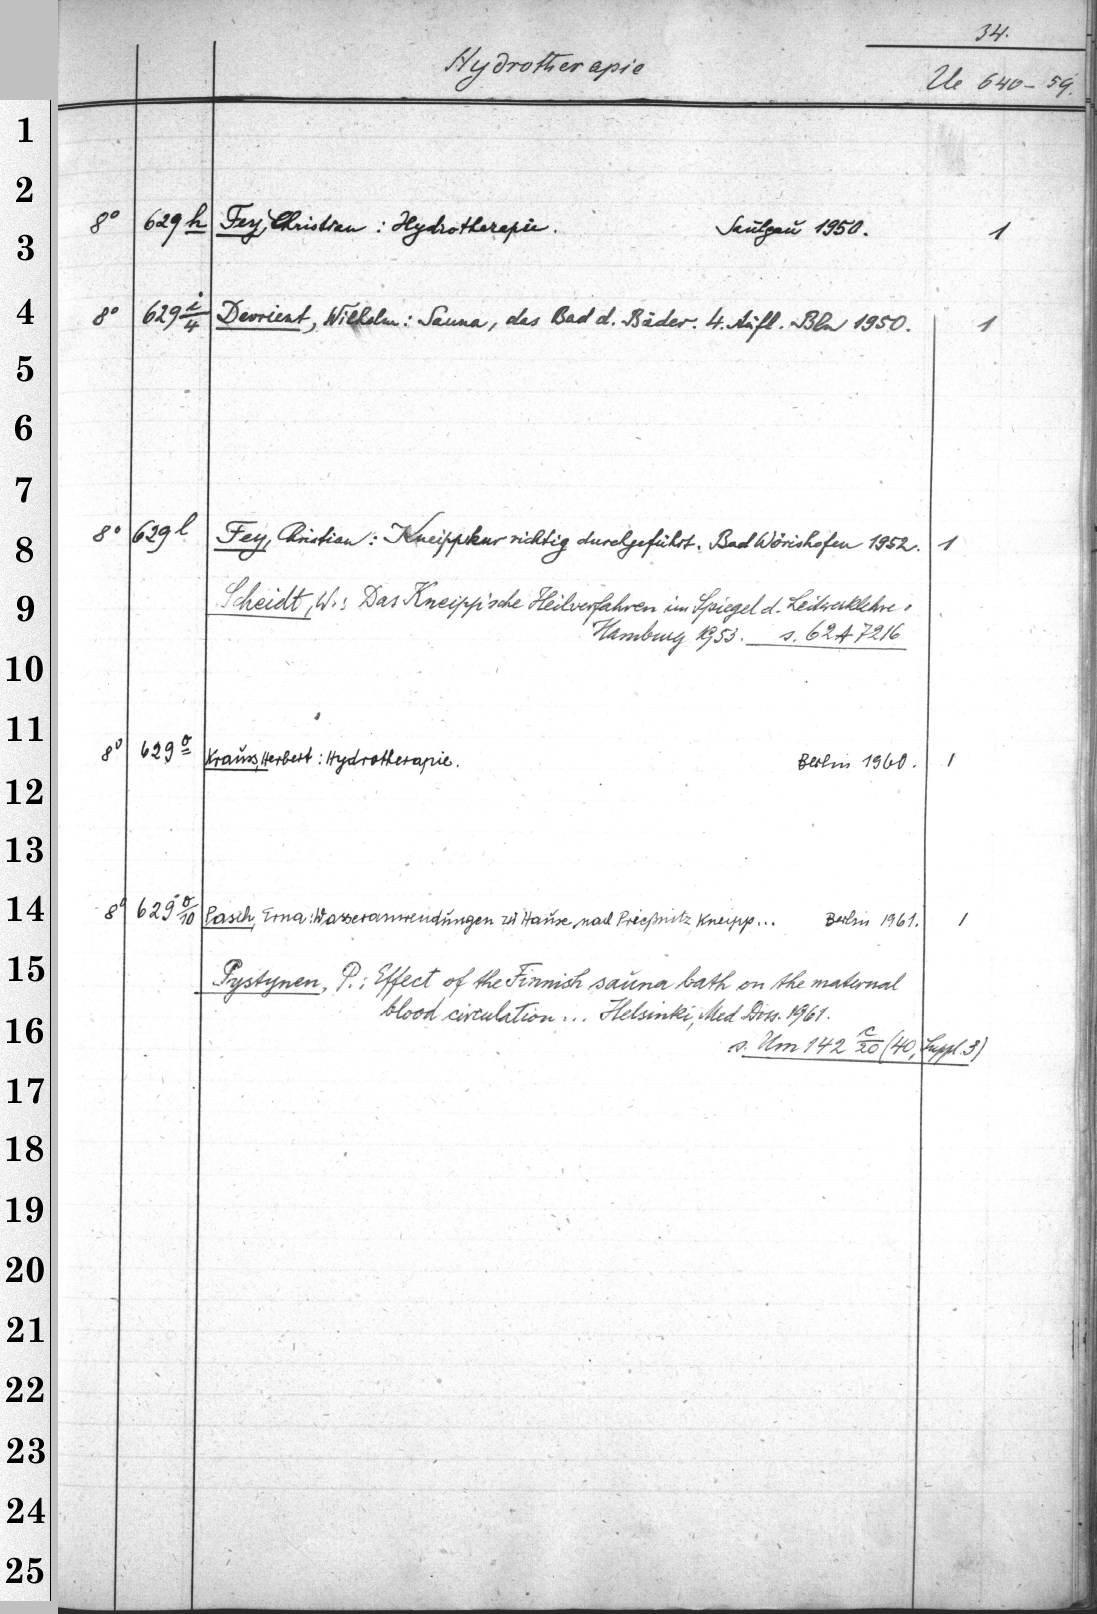 34.
Hydrotherapie
Ue 640-59.
1
2
8° 629 h Fey, Christian : Hydrotherapie. Saulgau 1950. 1
3
4 8° 629 i/4 Devrient, Wilhelm: Sauna, das Bad d. Bäder. 4. Aufl. Bln 1950. 1
5
6
7
8 8° 629 l Fey, Christian: Kneippkur richtig durchgeführt. Bad Wörishofen 1952. 1
9 Scheidt, W.: Das Kneipp'sche Heilverfahren im Spiegel d. Leitwerklehre.
Hamburg 1953. s. 62 A 7216
10
11
8° 629 o Krauss, Herbert : Hydrotherapie. Berlin 1960. 1
12
13
14 8° 629 o/10 Pasch, Erna: Wasseranwendungen zu Hause nach Prießnitz, Kneipp... Berlin 1961. 1
15 Pystynen, P.: Effect of the Finnish sauna bath on the maternal
16 blood circulation... Helsinki, Med Diss. 1961.
s. Um 142 c/20 (40, Suppl. 3)
17
18
19
20
21
22
23
24
25